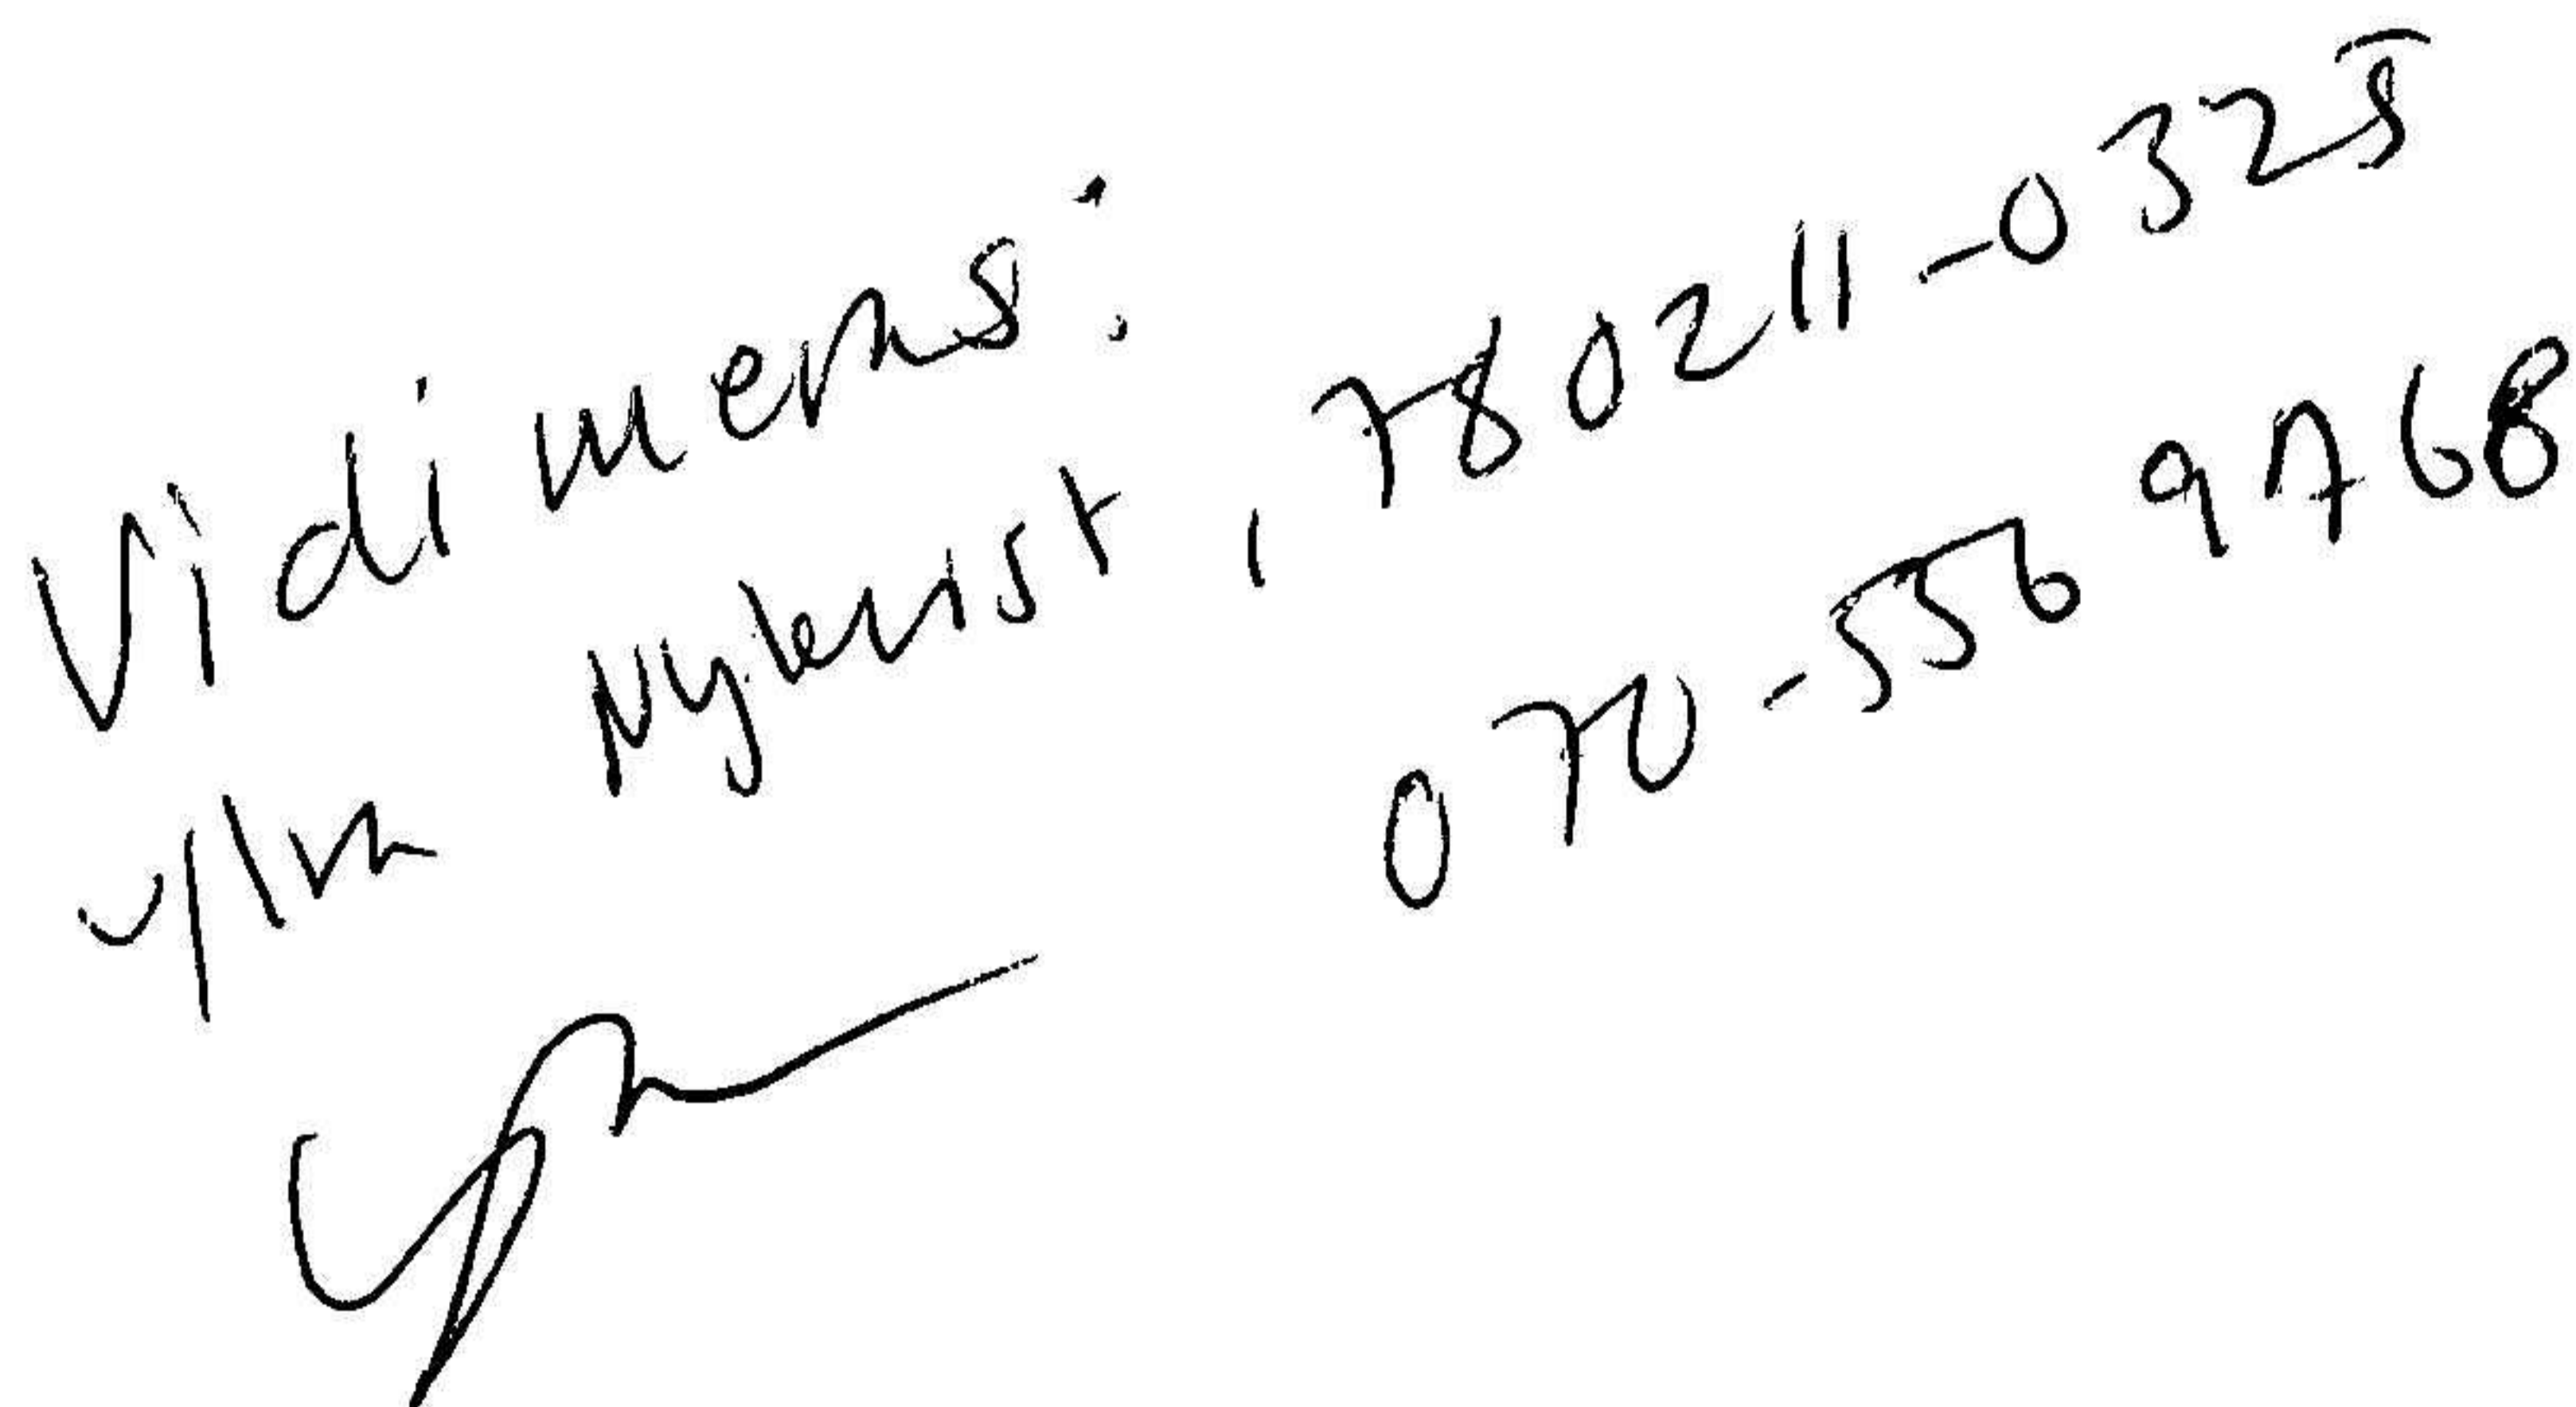 Vidimeras:
Ylva Nykvist, 780211-0325
070-556 9768